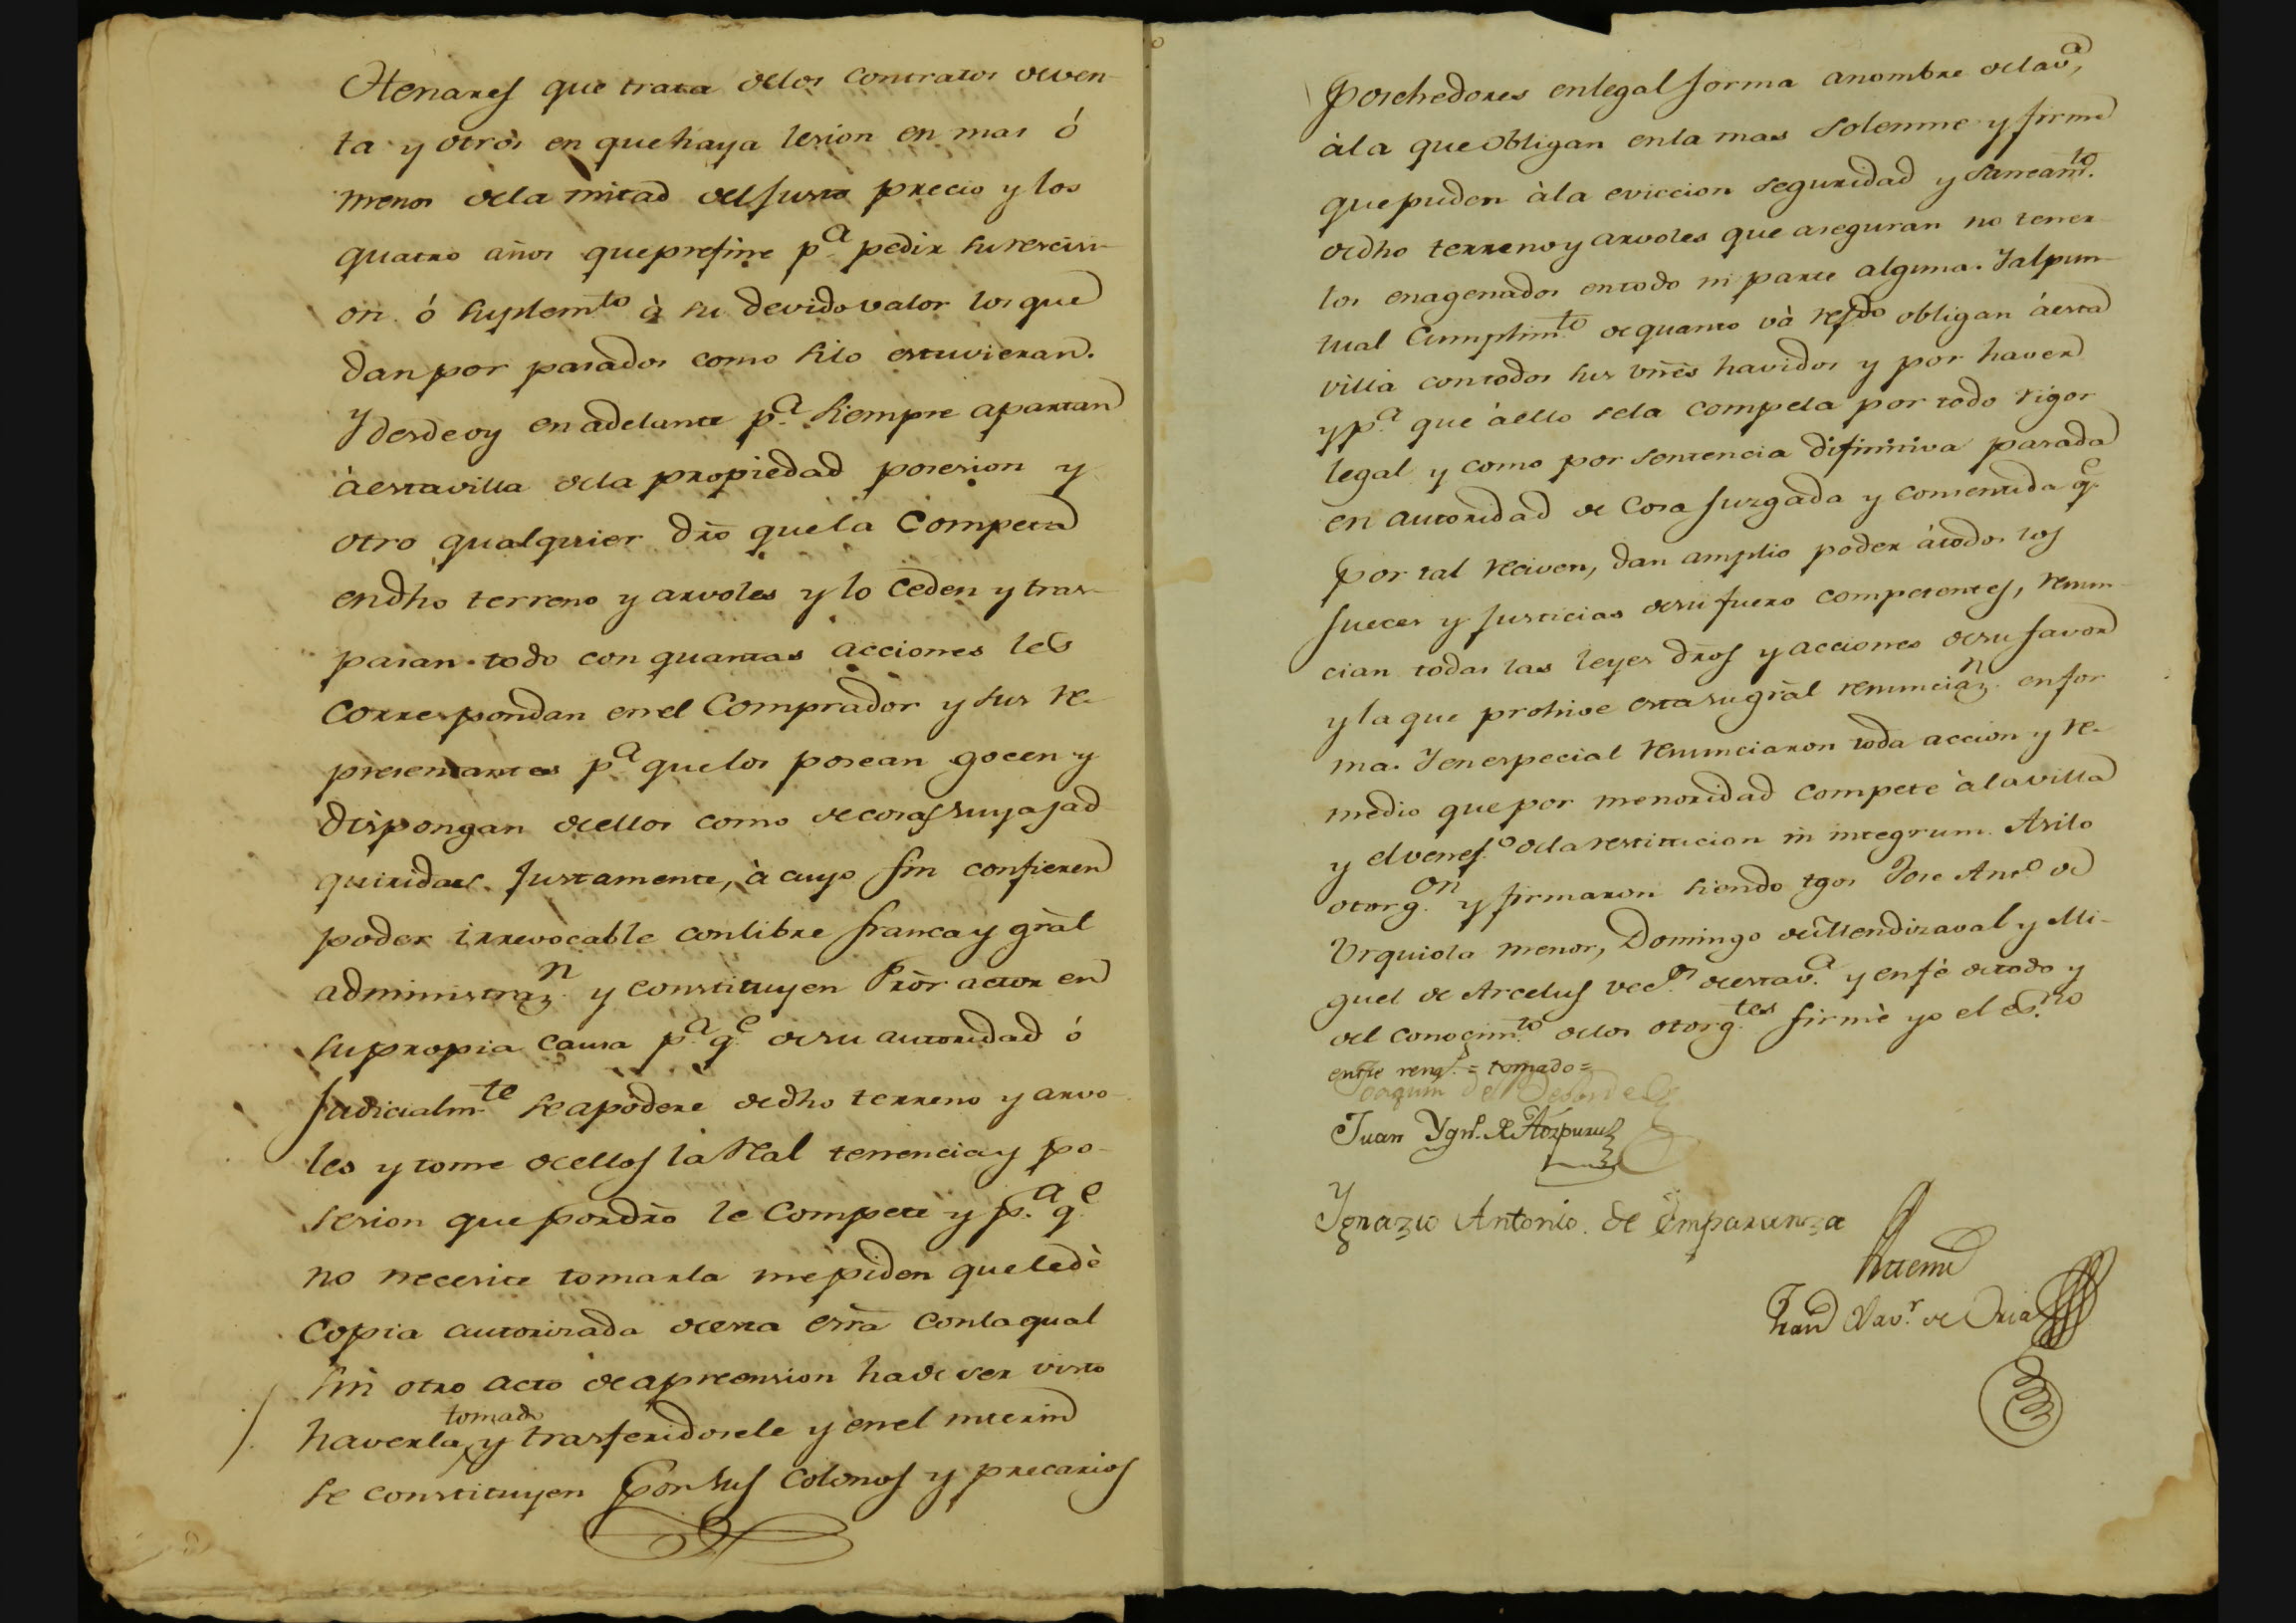 Henares que trata delos contratos deven-
ta y otros en que haya lesion en mas ó
menos dela mitad del justo precio y los
quatro años que prefine p.ª pedir su rescisi-
on ó suplem.to à su devido valor los que
dan por pasados como silo estuvieran.
Y desde oy en adelante p.ª siempre apartan
à esta villa dela propiedad posesion y
otro qualquier dro que la competa
en dho terreno y arvoles y lo ceden y tras-
pasan todo con quantas acciones les
correspondan en el Comprador y sus re-
presentantes p.ª que los posean gocen y
dispongan dellos como de cosas suyas ad
quiridas justamente, à cuyo fin confieren
poder irrevocable con libre franca y gral
administraz.n y constituyen Pror actor en
su propia causa p.ª q.e de su autoridad ó
Judicialm.te se apodere de dho terreno y arvo-
les y tome de ellos la Real tenencia y po-
sesion que por dro le compete y p.ª q.e
no necesite tomarla me piden que le dè
copia autorizada de esta esra con la qual
sin otro acto de apreension ha de ser visto
tomado
haverla y trasferidosele y en el interin
se constituyen por sus colonos y precarios
Posehedores en legal forma a nombre de la v.ª,
à la que obligan en la mas solemne y firme
que pueden à la eviccion seguridad y saneam.to
de dho terreno y arvoles que aseguran no tener-
los enagenados en todo ni parte alguna. Y al pun-
tual Cumplim.to de quanto và refdo obligan á esta
villa con todos sus vnēs havidos y por haver
y p.ª que á ello se la compela por todo rigor
legal y como por sentencia difinitiva pasada
en autoridad de Cosa Juzgada y consentida q.e
por tal reciven, dan amplio poder á todos los
Jueces y Justicias de su fuero competentes, renun-
cian todas las leyes dros y acciones de su favor
y la que prohive esta su gral renunciaz.n en for
ma. Y en especial renunciaron toda accion y re-
medio que por menoridad compete à la villa
y el venef.o de la restitucion in integrum. Asilo
otorg.on y firmaron siendo tgos Jose Ant.o de
Urquiola menor, Domingo de Mendizaval y Mi-
guel de Arcelus vec.s de esta v.ª y en fè de todo y
del conocim.to de los otorg.tes firmè yo el es.no
entre reng.s = tomado =
Joaquin de
Juan Ygn.o de Aozpurua
Ygnazio Antonio de Emparanza
Ante mi
Juan Bav.r de Oria